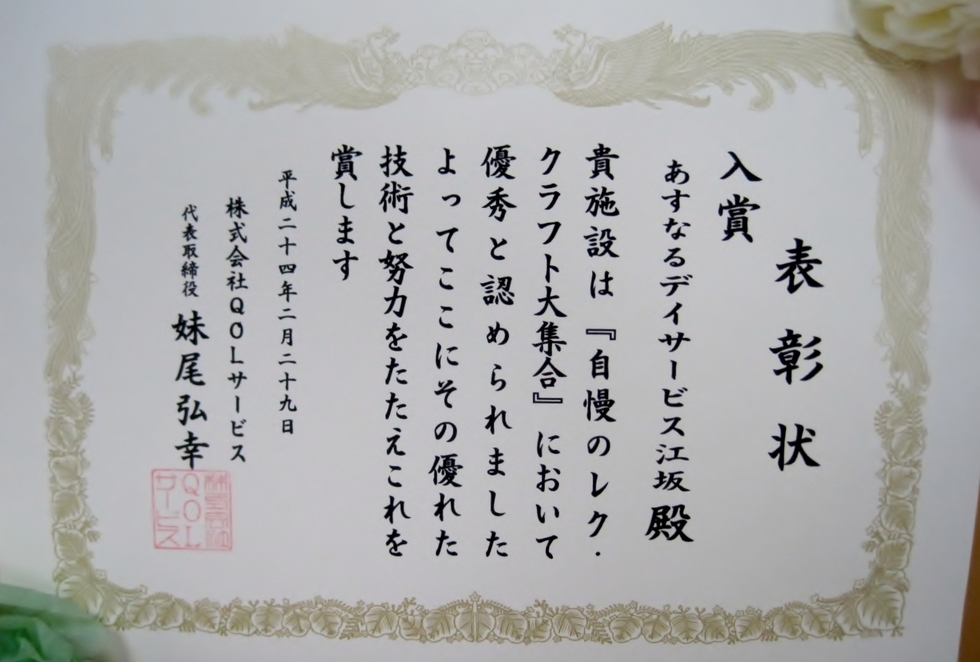 表彰状
入賞
あすなるデイサービス江坂 殿
貴施設は『自慢のレク・
クラフト大集合』において
優秀と認められました
よってここにその優れた
技術と努力をたたえこれを
賞します
平成二十四年二月二十九日
株式会社QOLサービス
代表取締役 妹尾弘幸
株式会社
QOL
サービス